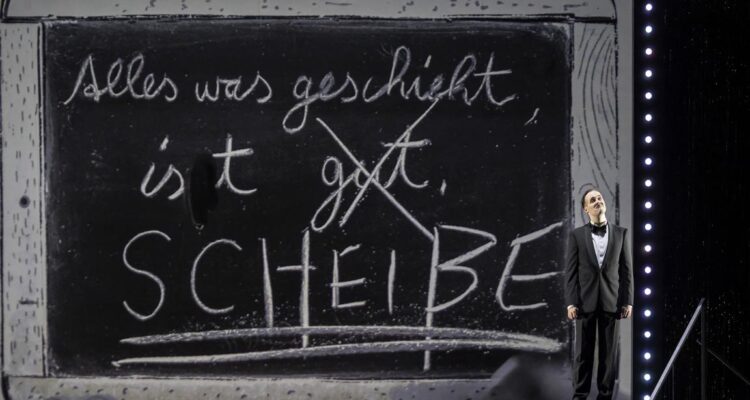 Alles was geschieht,
ist gut.
SCHEIßE